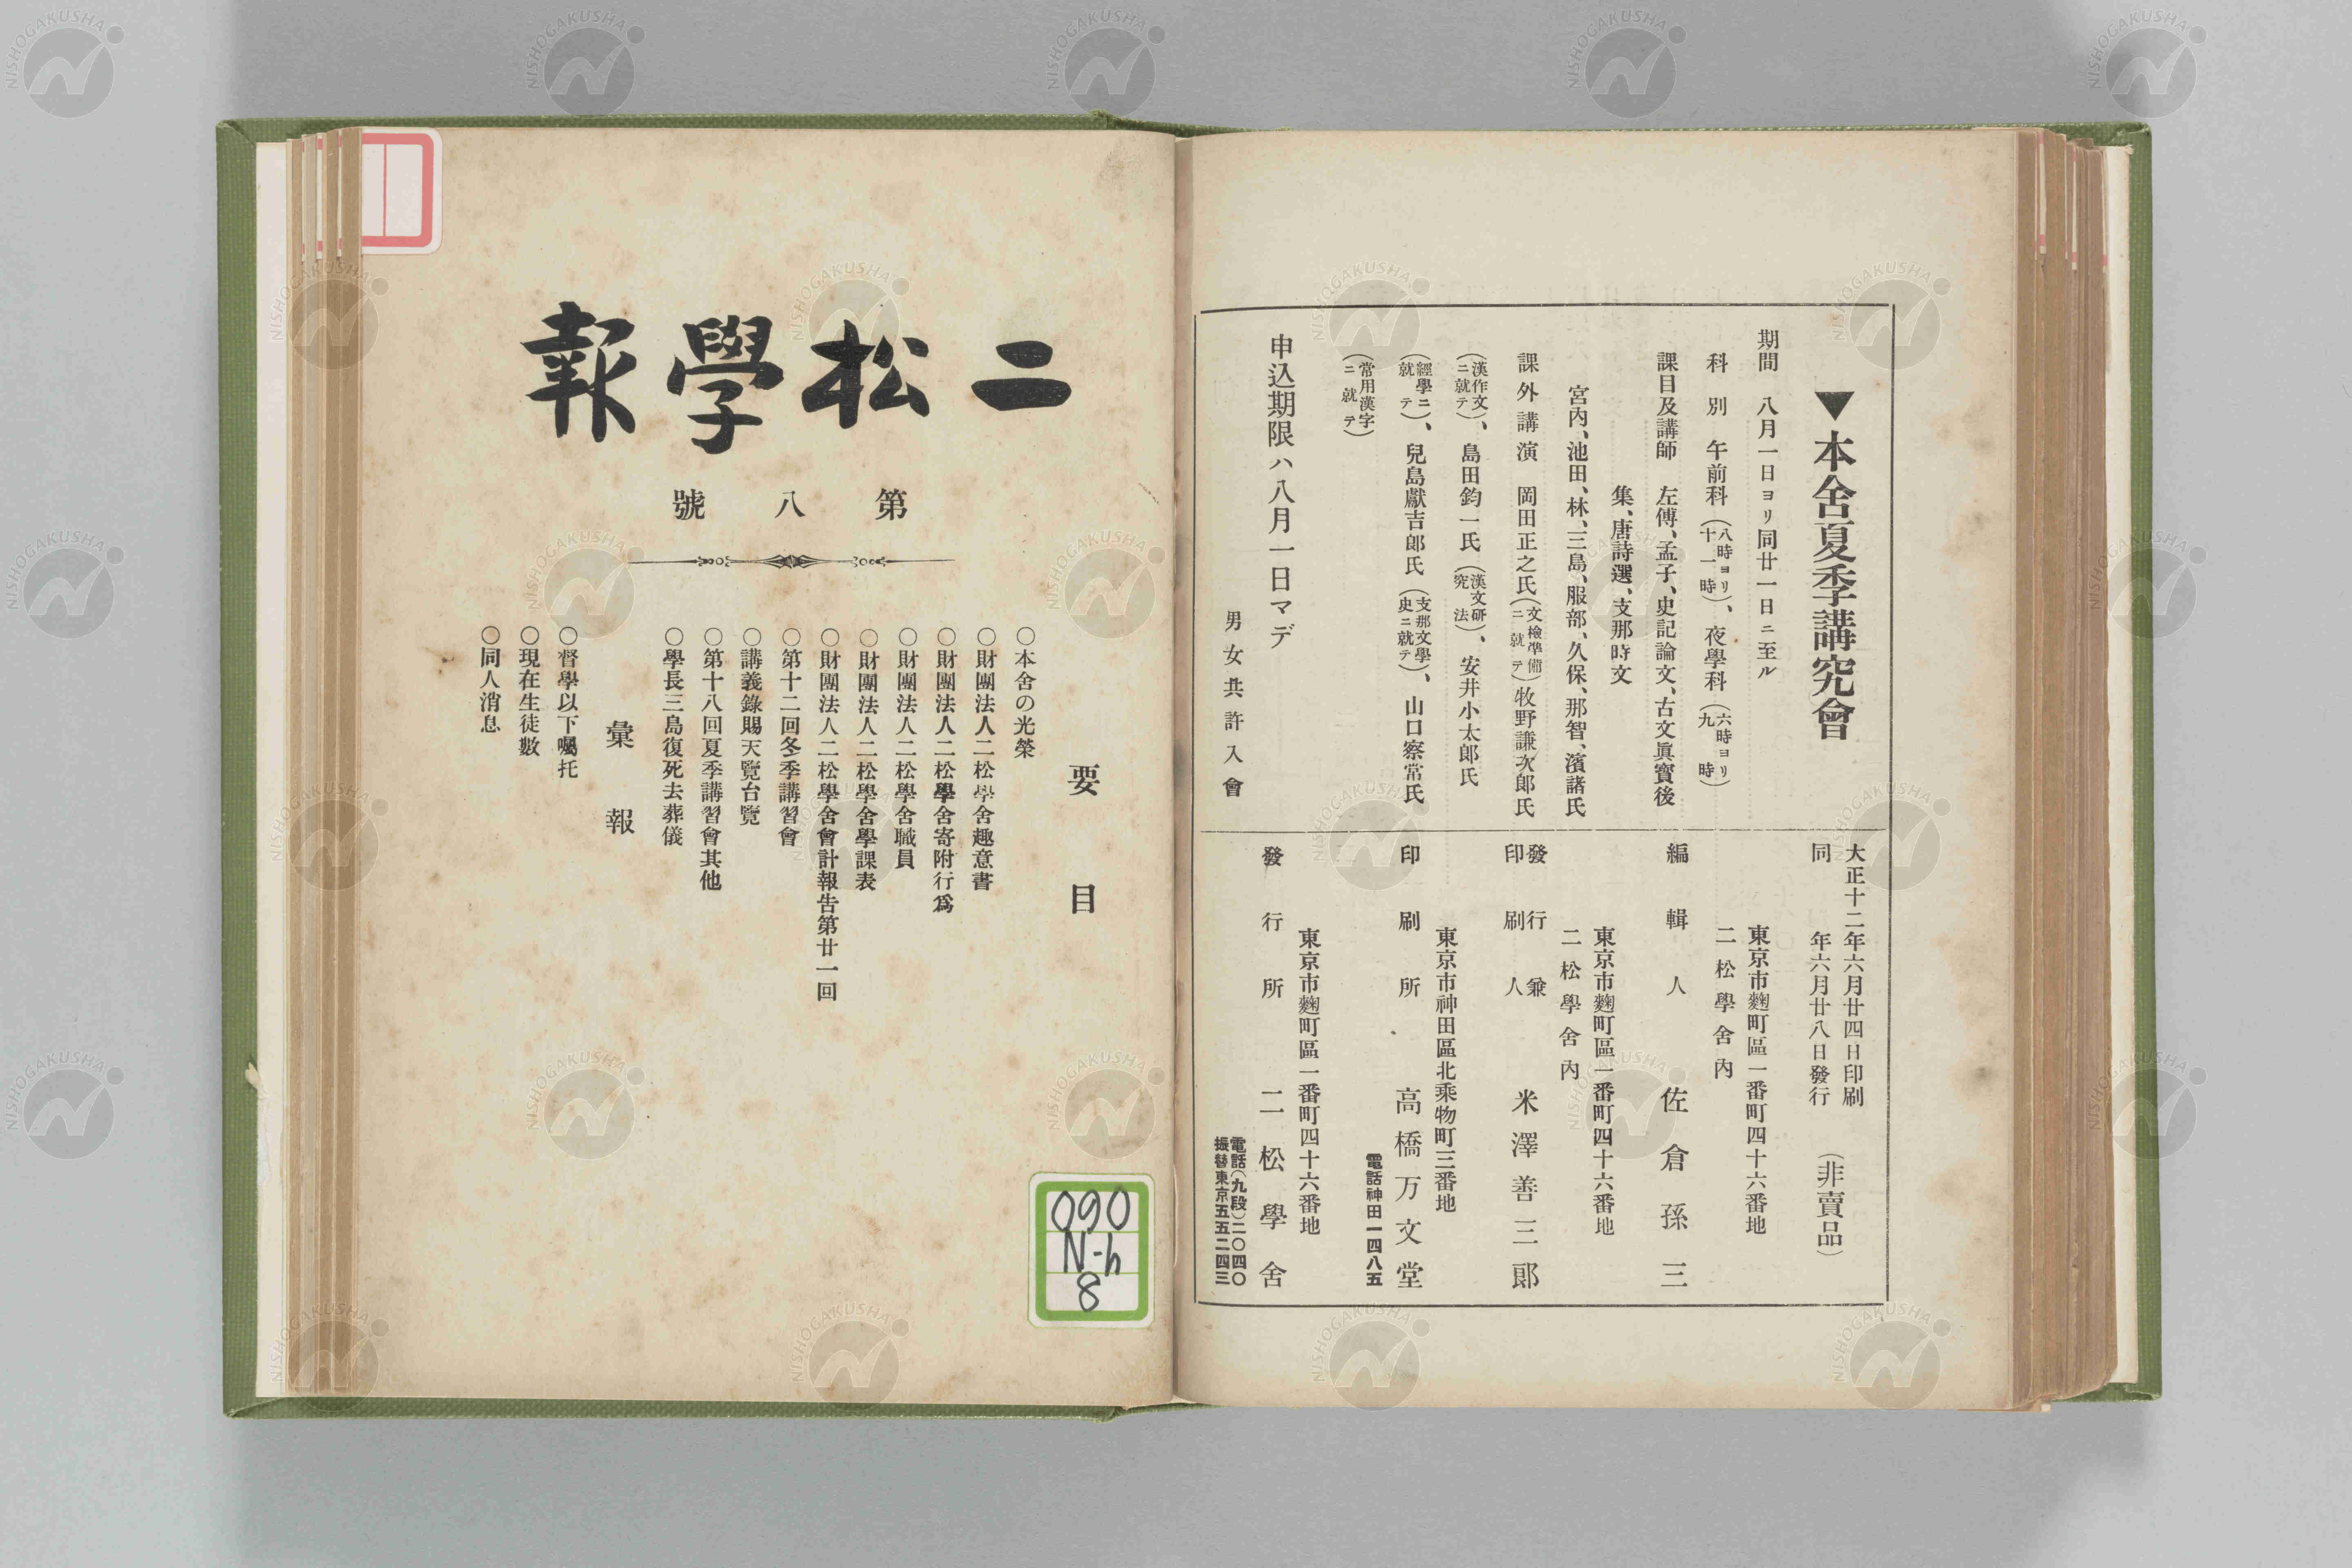 ▼本舍夏季講究會
期間 八月一日ヨリ同廿一日ニ至ル
科別 午前科(八時ヨリ十一時)、夜學科(六時ヨリ九時)
課目及講師 左傳、孟子、史記論文、古文眞寶後
集、唐詩選、支那時文
宮內、池田、林、三島、服部、久保、那智、濱諸氏
課外講演 岡田正之氏(文檢準備ニ就テ)牧野謙次郞氏
(漢作文ニ就テ)、島田鈞一氏(漢文研究法)、安井小太郞氏
(經學ニ就テ)、兒島獻吉郞氏(支那文學史ニ就テ)、山口察常氏
(常用漢字ニ就テ)
申込期限ハ八月一日マデ
男女共許入會
大正十二年六月廿四日印刷
同年六月廿八日發行
(非賣品)
東京市麴町區一番町四十六番地
二松學舍內
編輯人 佐倉孫三
東京市麴町區一番町四十六番地
二松學舍內
發行兼
印刷人 米澤善三郞
東京市神田區北乘物町三番地
印刷所 高橋万文堂
電話神田一四八五
東京市麴町區一番町四十六番地
發行所 二松學舍
電話(九段)二〇四〇
振替東京五五二四三
二松學報
第八號
要目
〇本舍の光榮
〇財團法人二松學舍趣意書
〇財團法人二松學舍寄附行爲
〇財團法人二松學舍職員
〇財團法人二松學舍學課表
〇財團法人二松學舍會計報告第廿一回
〇第十二回冬季講習會
〇講義錄賜天覽台覽
〇第十八回夏季講習會其他
〇學長三島復死去葬儀
彙報
〇督學以下囑托
〇現在生徒數
〇同人消息
090
N-h
8
NISHOGAKUSHA